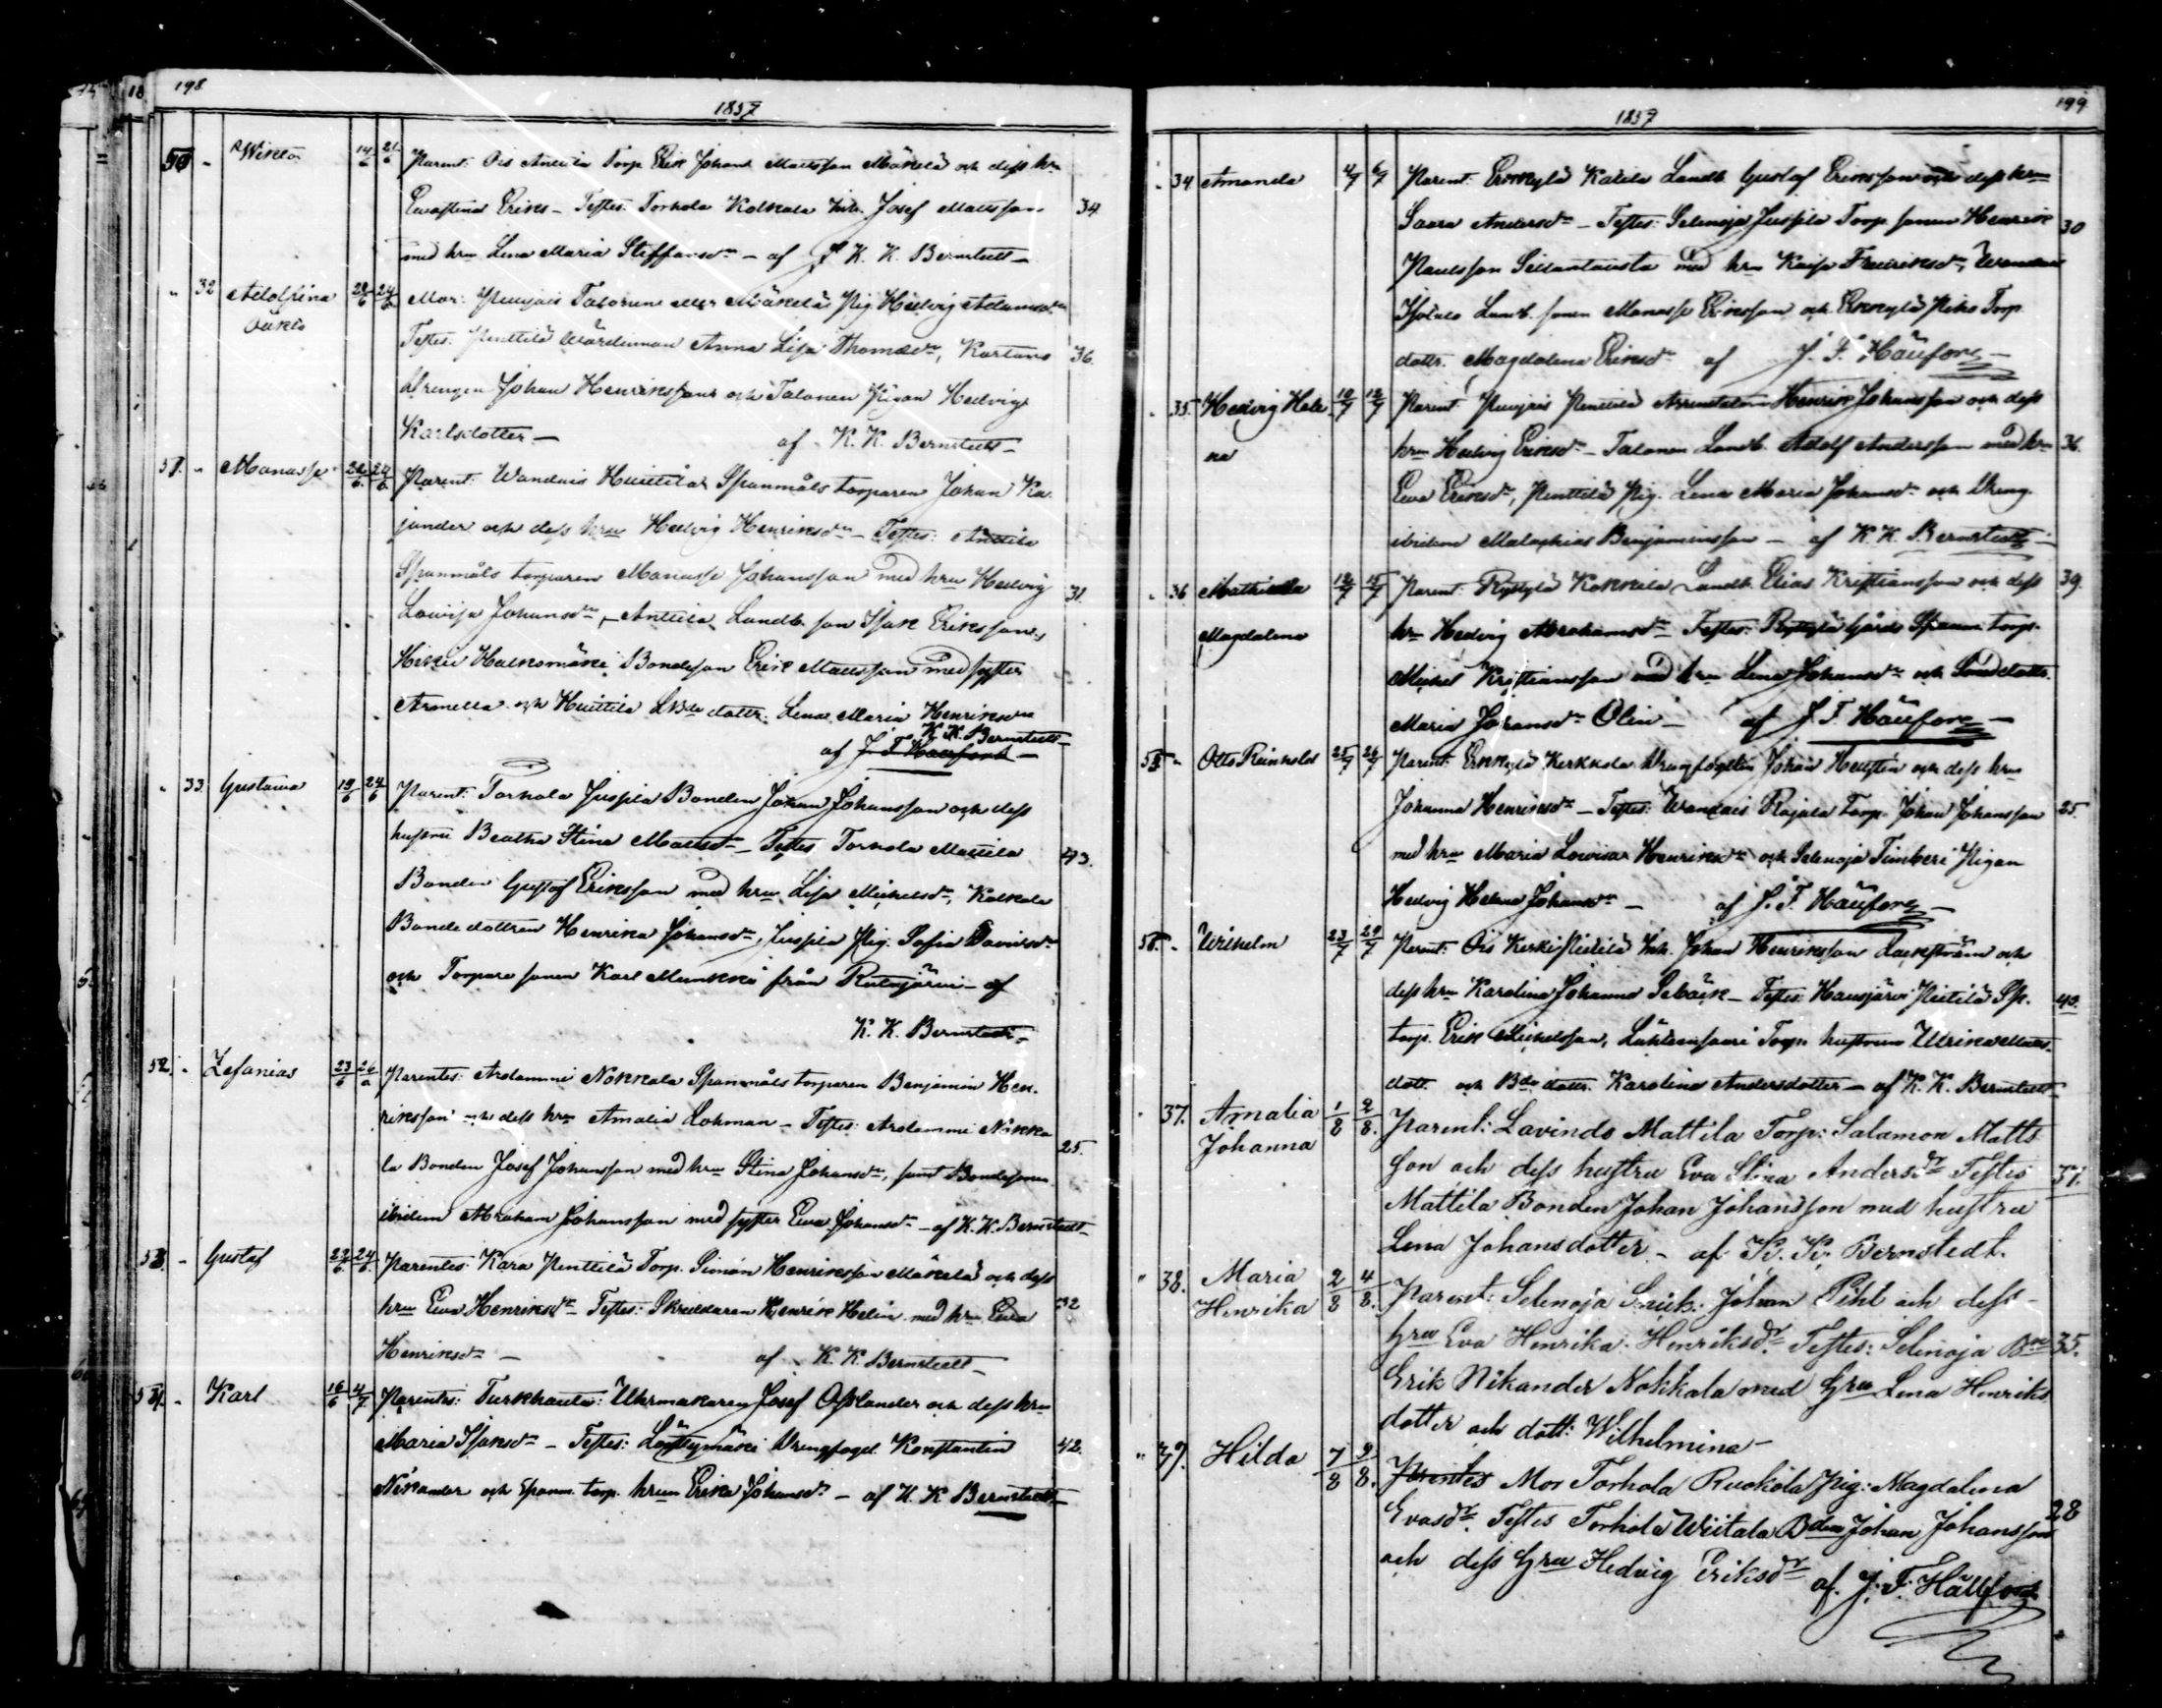 198
1857
50 - Wiktor 14/6 21/6 Parent: Ois Anttila Torp. Erik Johan Mattsson Mäkelä och dess hru
Evastina Eriks - Testes: Torhola Kolkala Inh. Josef Mattsson 34
med hru Lena Maria Steffansdr - af K. K. Bernstedt -
" 32 Adolfina 24/6 Mor: Punjais Talorun Mäkelä Pig. Hedvig Adamsdr
Testes: Penttilä Wärdinnan Anna Lisa Thomasdr, Kartano 36.
drengen Johan Henriksson och Talonen Pigan Hedvig
Karlsdotter - af K. K. Bernstedt -
51. - Manasse 22/6 24/6 Parent: Wandais Huittilä Spanmåls torparen Johan Ka
jander och dess hru Hedvig Henriksdr - Testes: Anttila
Spanmåls torparen Manasse Johansson med hru Hedvig 31.
Lovisa Johansdr, Anttila Landb. son Isak Eriksson,
Halkomäki Bondeson Erik Mattsson med syster
och Huittilä dottr. Lena Maria Henriksdr
K. K. Bernstedt -
af J. F. Hällfors -
" 33 Gustava 19/6 24/6 Parent: Torhola Juspila Bonden Johan Johansson och dess
hustru Beatha Stina Mattsdr - Testes Torhola Mattila 43.
Bonden Gustaf Eriksson med hru Lisa Michelsdr, Kolkala
Bondedottren Henrika Johansdr, Juspila Pig. Sofia Davidsdr
och Torpare sonen Karl Munkki från Rutajärvi - af
K. K. Bernstedt -
52. - Zefanias 23/6 26/6 Parentes: Ardammi Nokkala Spanmåls torparen Benjamin Hen-
riksson och dess hru Amalia Lohman - Testes: Ardammi Nokka 25.
la Bonden Josef Johansson med hru Stina Johansdr, samt Bondesonen
ibidem Abraham Johansson med syster Ewa Johansdr - af K. K. Bernstedt -
53. - Gustaf 24/6 Parentes: Kara Penttilä Torp. Simon Henriksson Mäkelä och dess
hru Ewa Henriksdr - Testes: Skräddaren Henrik Helin med hru Ewa 32
Henriksdr - af K. K. Bernstedt -
54. - Karl 16/6 4/7 Parentes: Turkhauta: Uhrmakaren Josef Asplander och dess hru
Maria Isaksdr - Testes: Löyttymäki Drengfogd. Konstantin 42.
Nikander och Spanm. torp. hrun Erika Johansdr - af K. K. Bernstedt -
199
1857
" 34 Amanda 4/7 6/7 Parent: Erkkylä Katila Landb. Gustaf Eriksson och dess hru
Saara Andersdr - Testes: Selenoja Juspila Torp. sonen Henrik 30
Paulsson Sillantausta med hru Kaisa Fredriksdr, Wandais
Isotalo Landb. sonen Manasse Eriksson och Erkkylä Torp.
dottr. Magdalena Eriksdr af J. F. Hällfors -
" 35. Hedvig Hele 10/7 12/7 Parent: Punjais Penttilä Arrendatorn Henrik Johansson och dess
na hru Hedvig Eriksdr - Talonen Landb. Adolf Andersson med hru 36.
Ewa Eriksdr, Penttilä Pig. Lena Maria Johansdr och Dreng.
ibidem Malachias Benjaminsson - af K. K. Bernstedt -
" 36 Mathilda 12/7 15/7 Parent: Ryttylä Kokkila Landb. Elias Kristiansson och dess 39.
Magdalena hru Hedvig Abrahamsdr Testes: Ryttylä Gårds Spanm. torp.
Michel Kristiansson med hru Lena Johansdr och dottr.
Maria Johansdr Olin - af J. F. Hällfors -
55 - Otto Reinhold 25/7 26/7 Parent: Erkkylä Kerkkola Drengfogden Johan Hellstén och dess hru
Johanna Henriksdr - Testes: Wandais Rajala Torp. Johan Johansson 25.
med hru Maria Lovisa Henriksdr och Selenoja Timberi Pigan
Hedvig Helena Johansdr - af J. F. Hällfors -
56. - Wilhelm 23/7 29/7 Parent: Ois Inh. Johan Henriksson Lackström och
dess hru Karolina Johansd Sebäck - Testes: Hausjärvi Pietilä Sp. 40.
torp. Erik Michelsson, Torp. hustrun Ulrika Matts-
dott. och Bde dottr. Karolina Andersdotter - af K. K. Bernstedt -
" 37. Amalia 1/8 2/8. Parent: Lavindo Mattila Torp: Salamon Matts
Johanna son och dess hustru Eva Stina Andersdr Testes 37.
Mattila Bonden Johan Johansson med hustru
Lena Johansdotter - af K. K. Bernstedt.
" 38. Maria 2/8 4/8. Parent: Selenoja Snick: Johan Pihl och dess -
Henrika hru Eva Henrika Henriksdr Testes: Selenoja Bn 35.
Erik Nikander Nokkala med hru Lena Henriks
dotter och dott: Wilhelmina -
" 39. Hilda 7/8 9/8. Parentes Mor Torhola Ruokola Pig: Magdalena
Evasdr Testes Torhola Wiitala Bden Johan Johansson 28
och dess hru Hedvig Eriksdr af. J. F. Hällfors